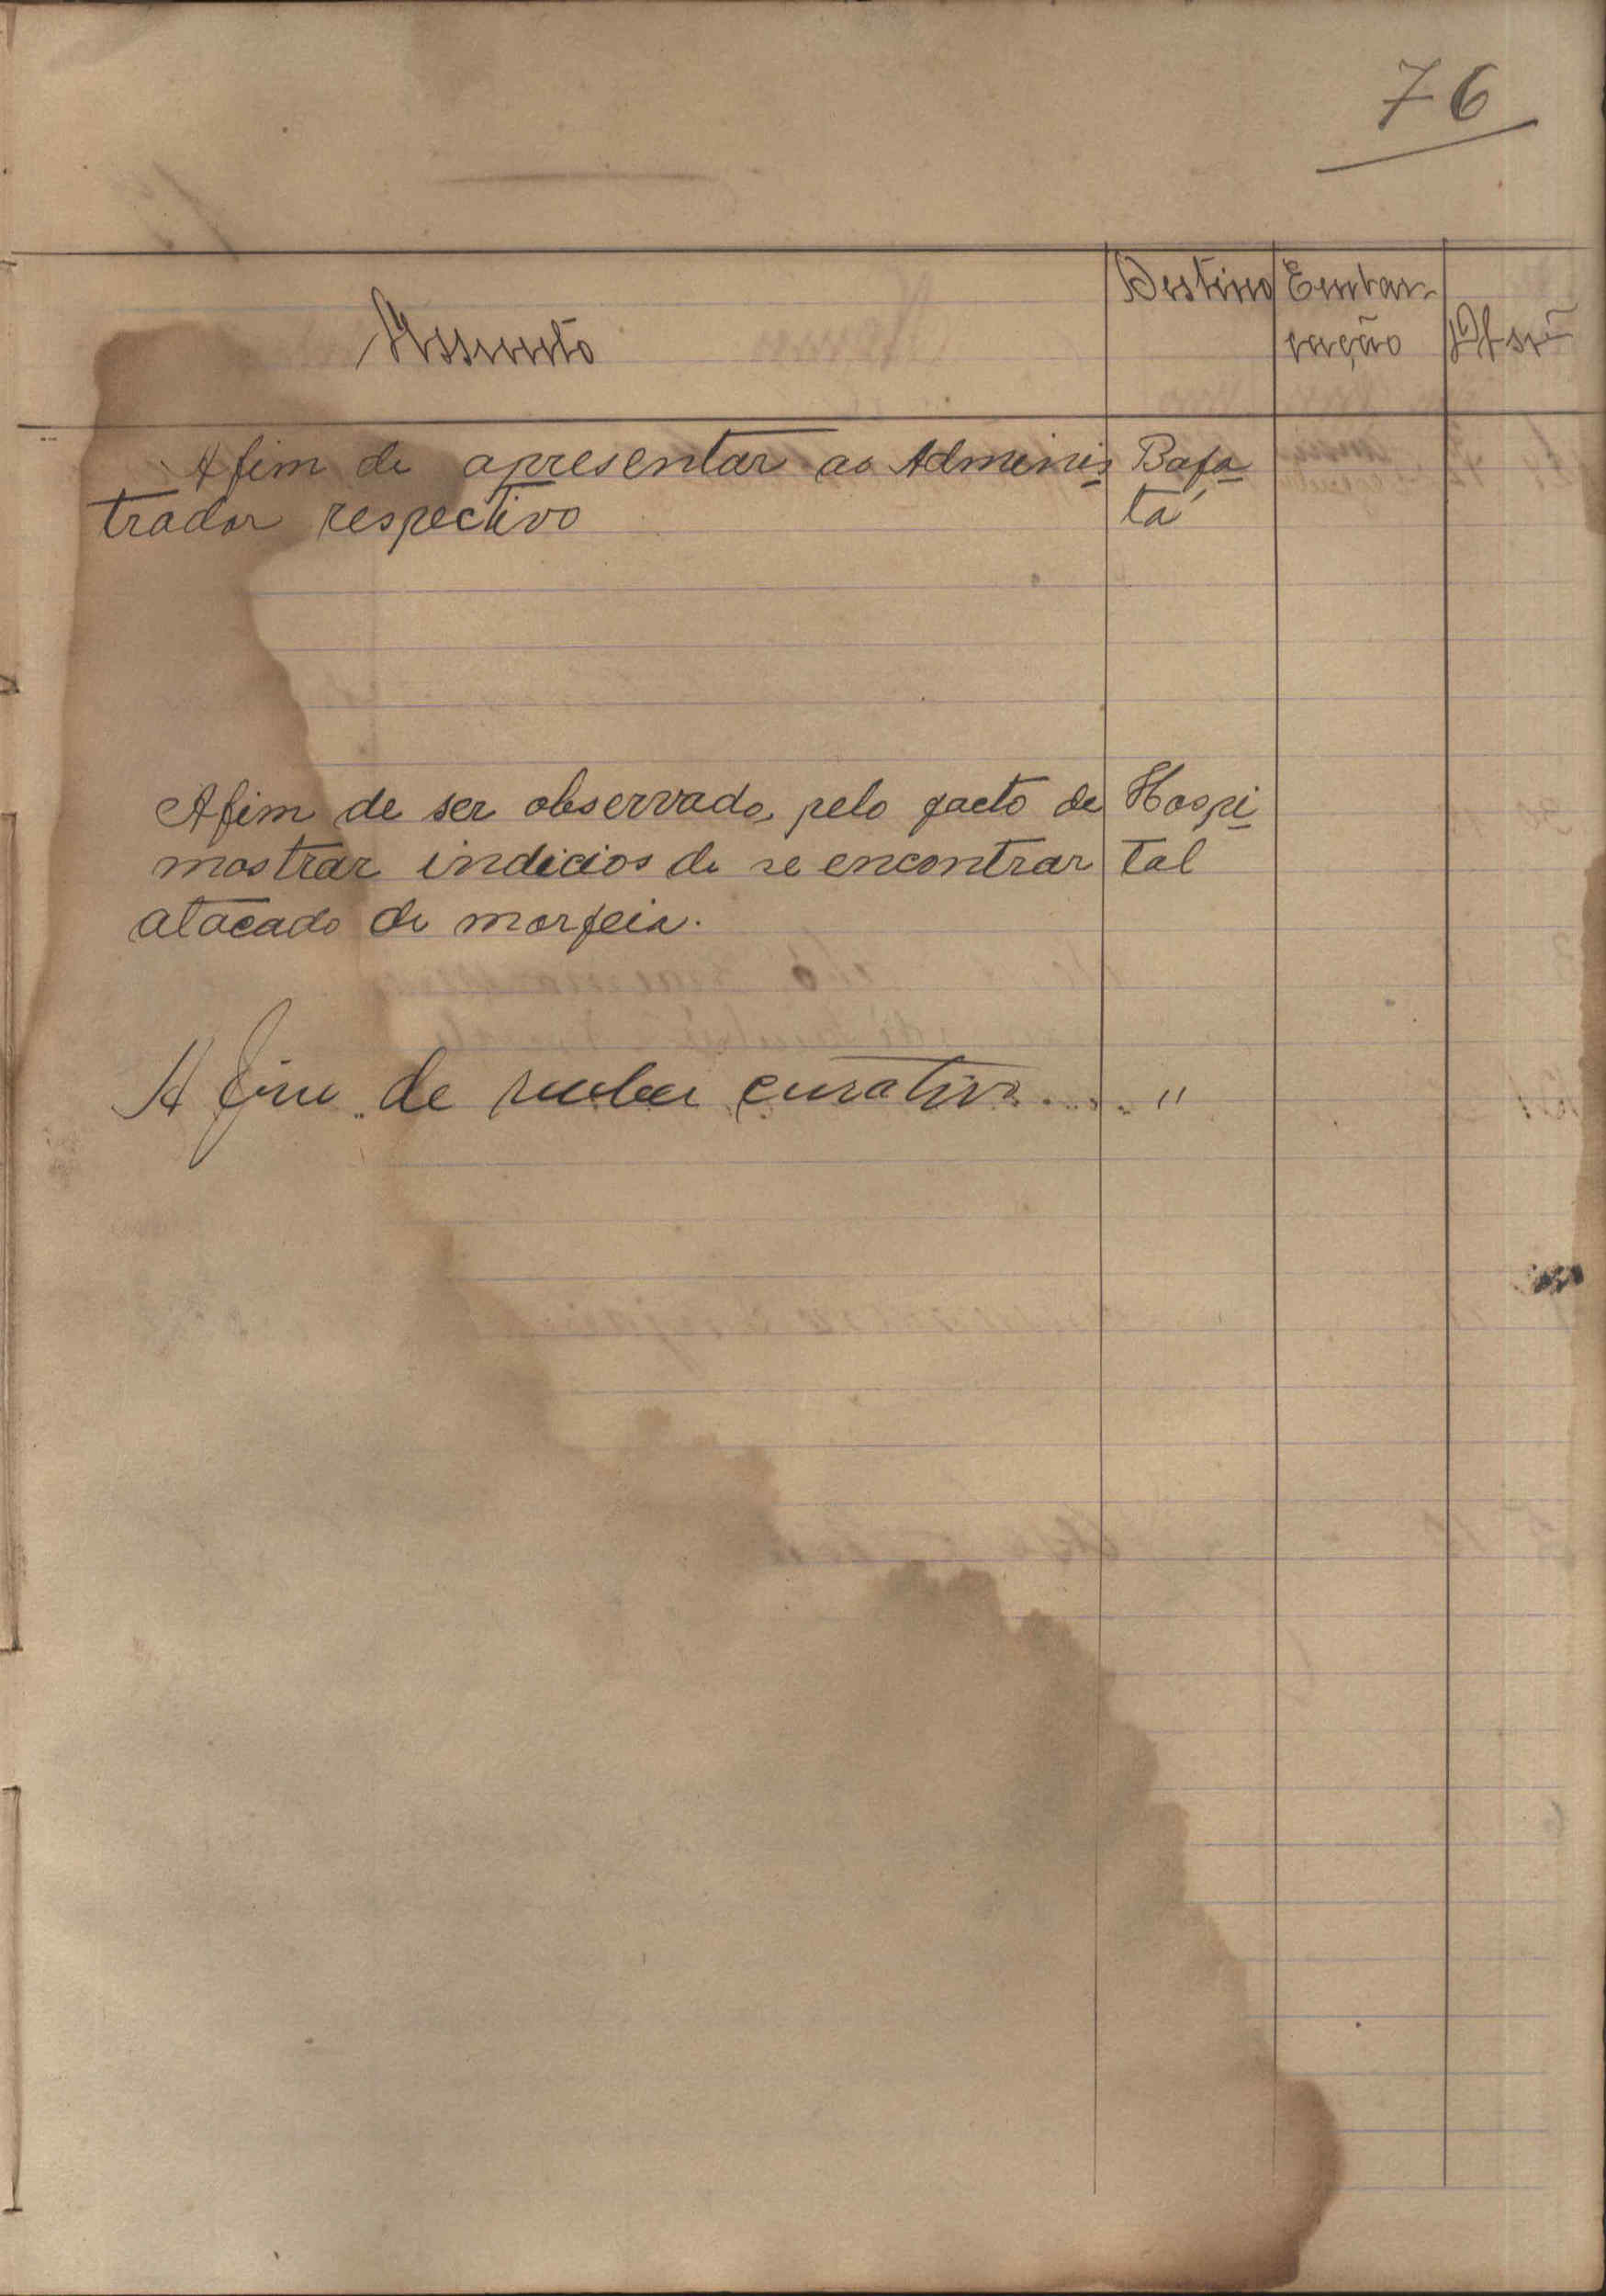 76
Assunto
Destino
Embar-
cação
Obs
Afim de apresentar ao Adminis
trador respectivo
Bafa
tá
Afim de ser observado, pelo facto de
mostrar indicios de se encontrar
atacado de morfeia.
Hospi
tal
A fim de receber curativo..... "